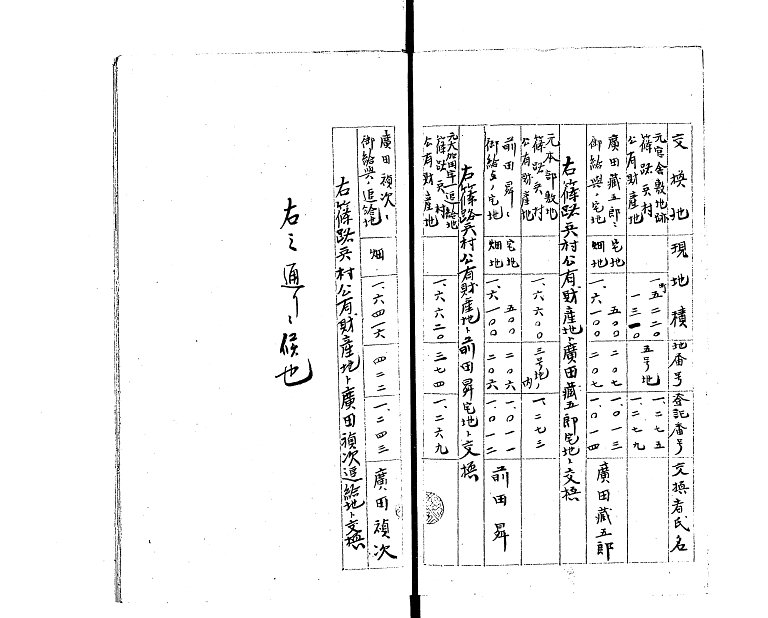 交換地 現地積 地番号 登記番号 交換者氏名
元官舎敷地跡
篠路兵村
公有財産地 町 一、五二二〇 一三一〇 五号地 一、二七五 一、二七九
廣田藏五郎ニ
御給與ノ宅地 宅地 畑地 五〇〇 一、六一〇〇 二〇七 二〇七 一、〇一三 一、〇一四 廣田藏五郎
右篠路兵村公有財産地ト廣田藏五郎宅地ト交換
元本部敷地
篠路兵村
公有財産地 一、六六〇〇 三号地ノ内 一、二七三
前田昇ニ
御給与ノ宅地 宅地 畑地 五〇〇 一、六一〇〇 二〇六 二〇六 一、〇一一 一、〇一二 前田昇
右篠路兵村公有財産地ト前田昇宅地ト交換
追給地
篠路兵村
公有財産地 一、六六二〇 三七四 一、二六九
廣田禎次ニ
御給與ノ追給地 畑 一、六四一六 四二二 一、二四三 廣田禎次
右篠路兵村公有財産地ト廣田禎次追給地ト交換
右之通リニ候也